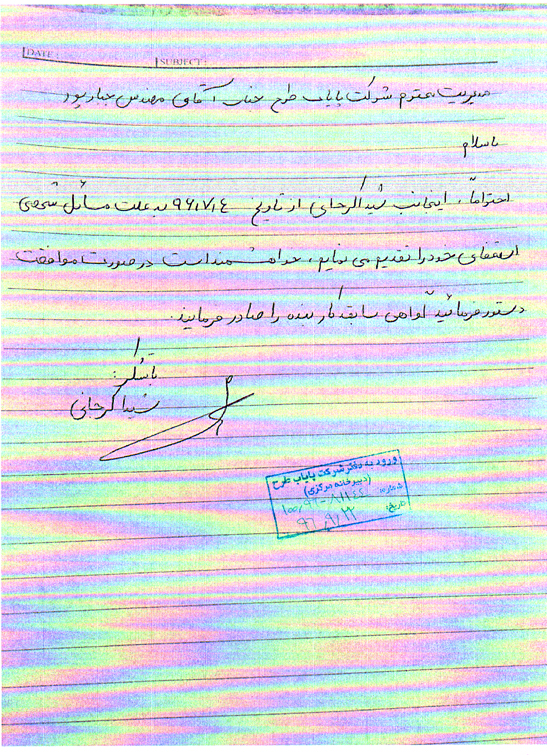 DATE:
SUBJECT:
مدیریت محترم شرکت پایاب طرح جناب آقای مهندس جبارپور
باسلام
احتراماً، اینجانب شیدا کرجانی از تاریخ ۹۶/۷/۱۴ به علت مسائل شخصی
استعفای خود را تقدیم می نمایم، خواهشمند است در صورت موافقت
دستور فرمائید گواهی سابقه کار بنده را صادر فرمایند.
باتشکر:
شیدا کرجانی
ورود به دفتر شرکت پایاب طرح
(دبیرخانه مرکزی)
شماره:
تاریخ: